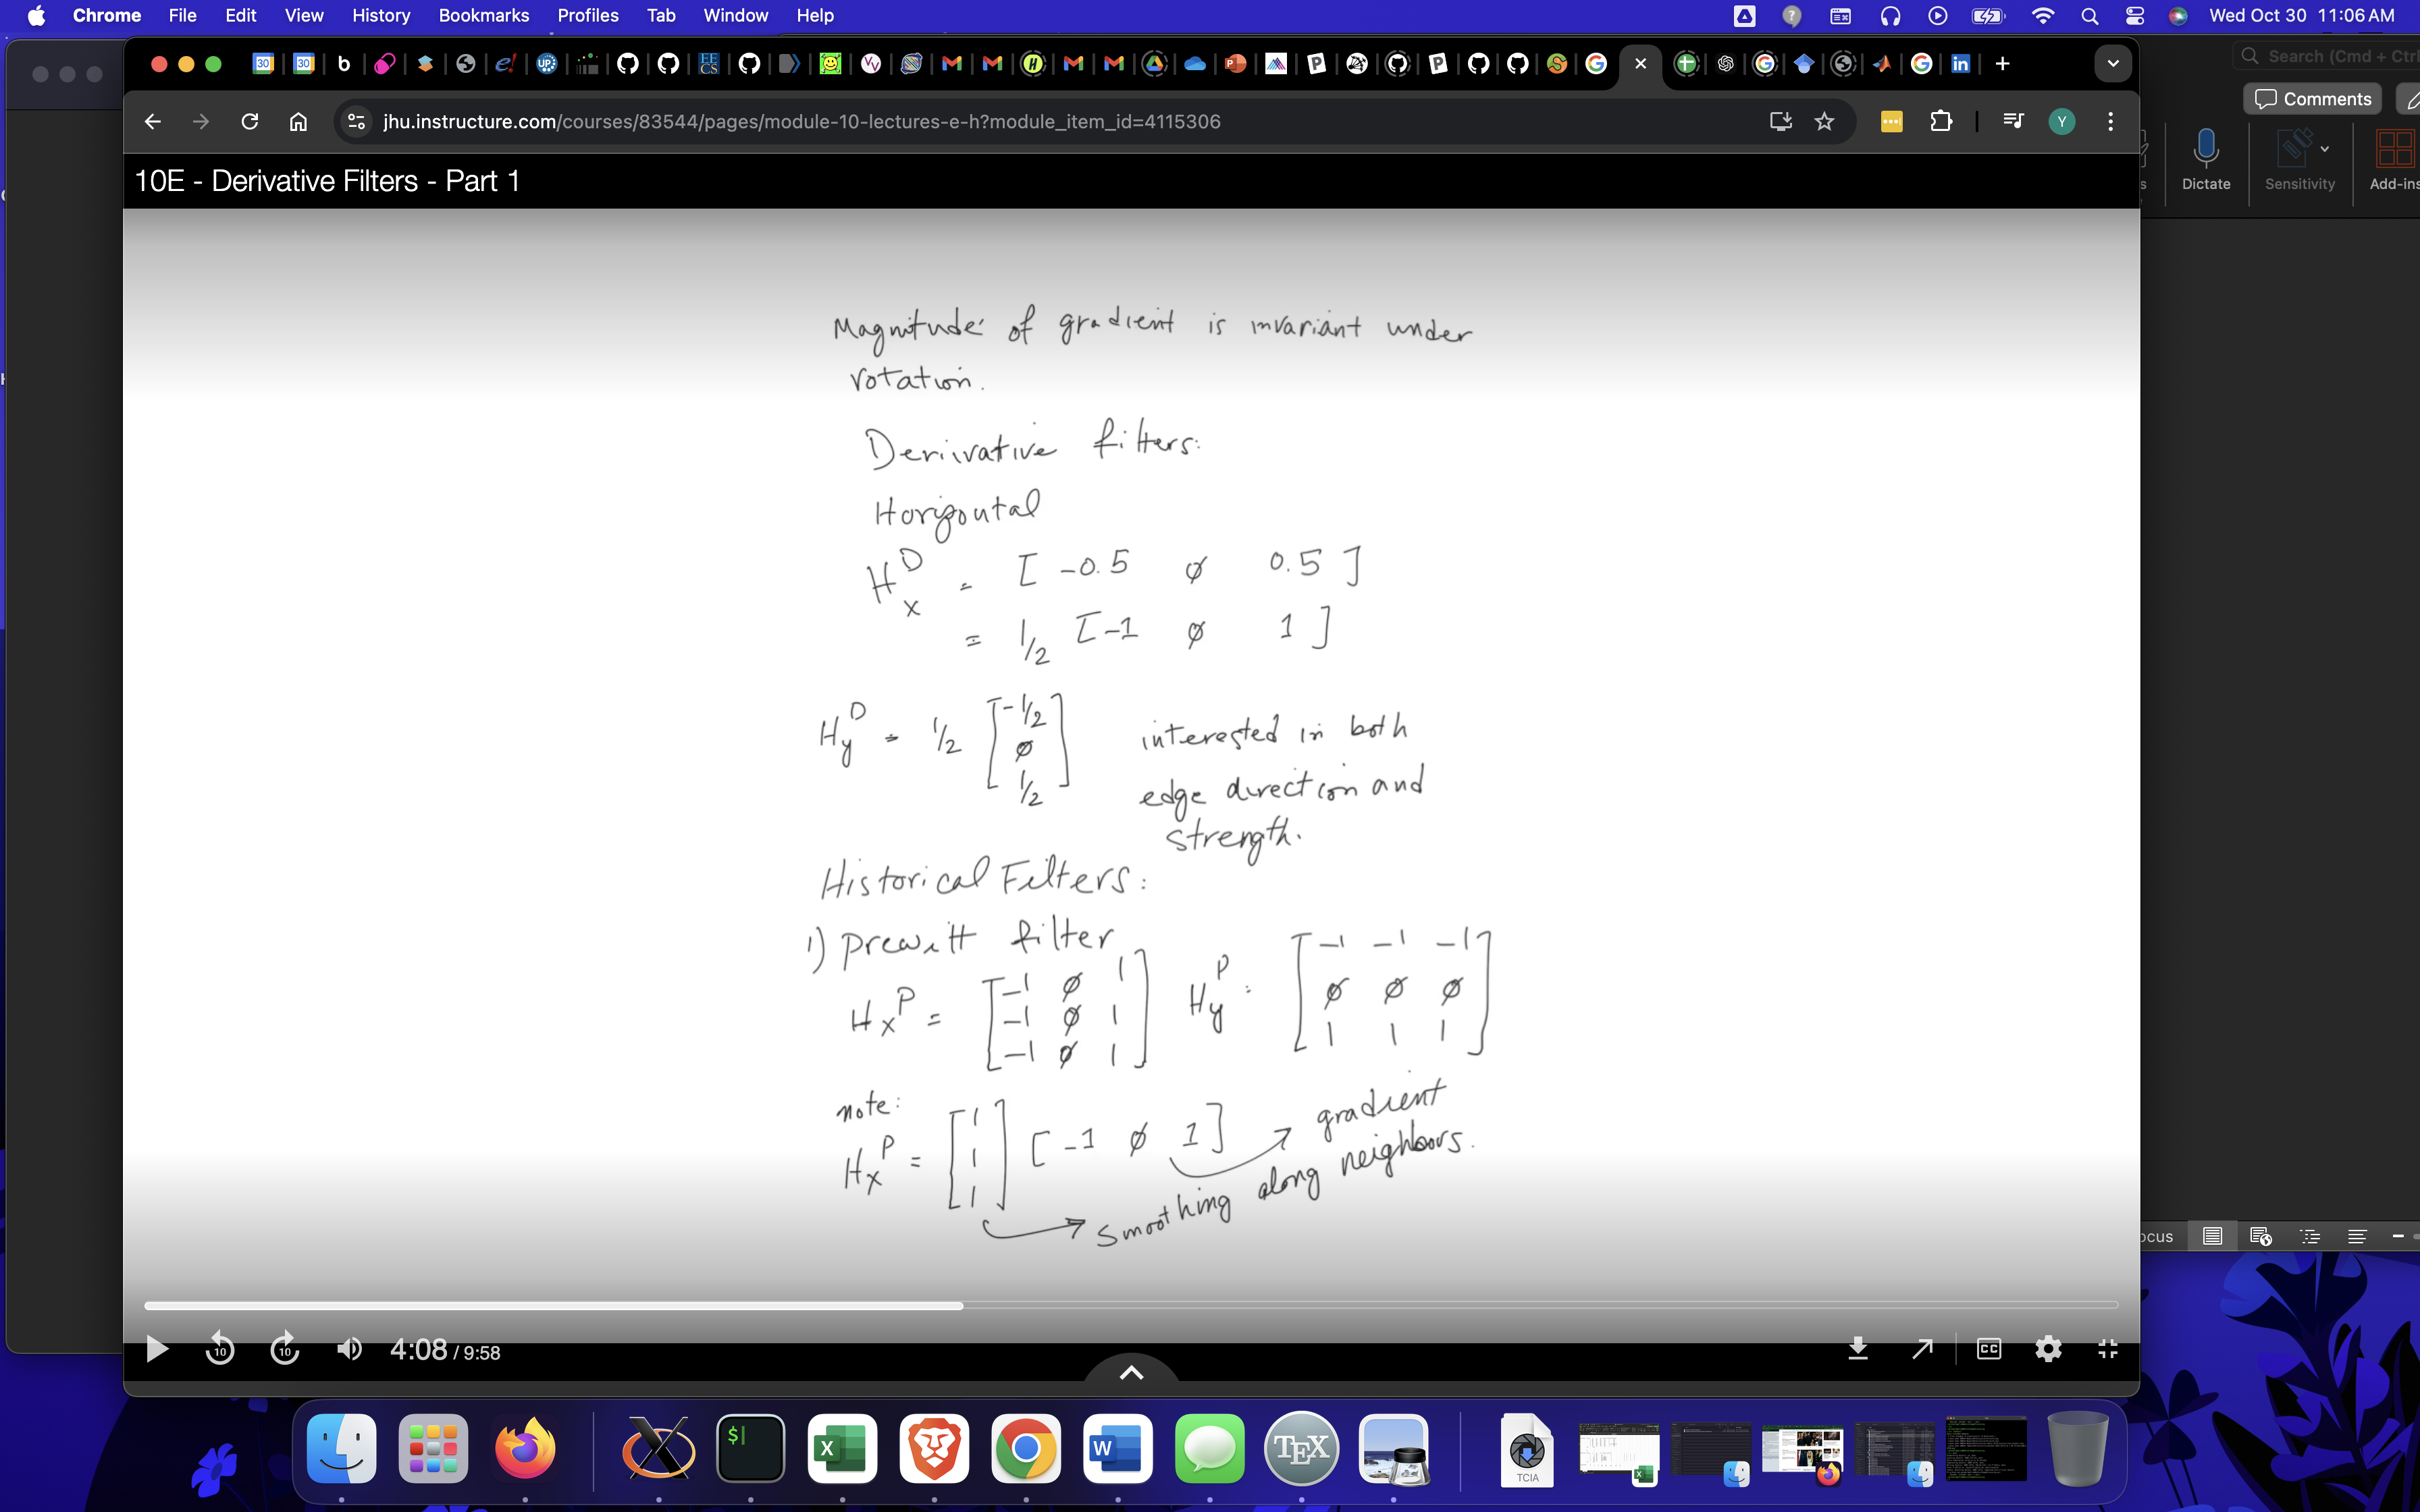 Chrome File Edit View History Bookmarks Profiles Tab Window Help Wed Oct 30 11:06 AM
Search (Cmd + Ctrl
jhu.instructure.com/courses/83544/pages/module-10-lectures-e-h?module_item_id=4115306
Comments
Dictate Sensitivity Add-ins
10E - Derivative Filters - Part 1
Magnitude of gradient is invariant under
rotation.
Derivative filters:
Horizontal
H_x^D = [ -0.5 ∅ 0.5 ]
= 1/2 [ -1 ∅ 1 ]
H_y^D = 1/2 [ -1/2 ∅ 1/2 ]
interested in both
edge direction and
strength.
Historical Filters:
1) prewitt filter
H_x^P = [ -1 ∅ 1
-1 ∅ 1
-1 ∅ 1 ]
H_y^P = [ -1 -1 -1
∅ ∅ ∅
1 1 1 ]
note:
H_x^P = [ 1 1 1 ] [ -1 ∅ 1 ]
gradient
smoothing along neighbors.
4:08 / 9:58
CC
ocus
TCIA